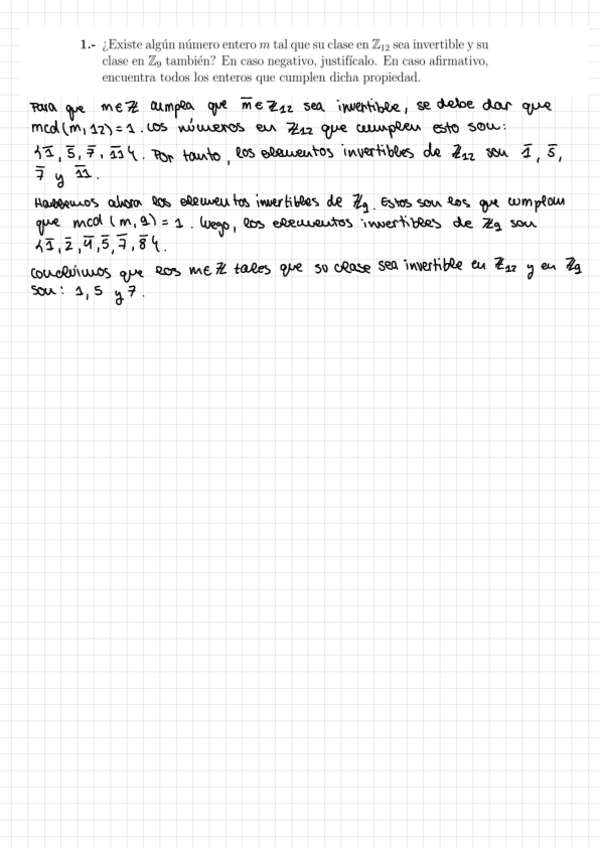 1.- ¿Existe algún número entero m tal que su clase en ℤ₁₂ sea invertible y su
clase en ℤ₉ también? En caso negativo, justifícalo. En caso afirmativo,
encuentra todos los enteros que cumplen dicha propiedad.
Para que m∈ℤ cumpla que m̅ ∈ ℤ₁₂ sea invertible, se debe dar que
mcd(m,12)=1. Los números en ℤ₁₂ que cumplen esto son:
{1̅, 5̅, 7̅, 1̅1̅}. Por tanto, los elementos invertibles de ℤ₁₂ son 1̅, 5̅,
7̅ y 1̅1̅.
Hallemos ahora los elementos invertibles de ℤ₉. Estos son los que cumplen
que mcd(m,9)=1. Luego, los elementos invertibles de ℤ₉ son
{1̅, 2̅, 4̅, 5̅, 7̅, 8̅}.
Concluimos que los m∈ℤ tales que su clase sea invertible en ℤ₁₂ y en ℤ₉
son: 1, 5 y 7.